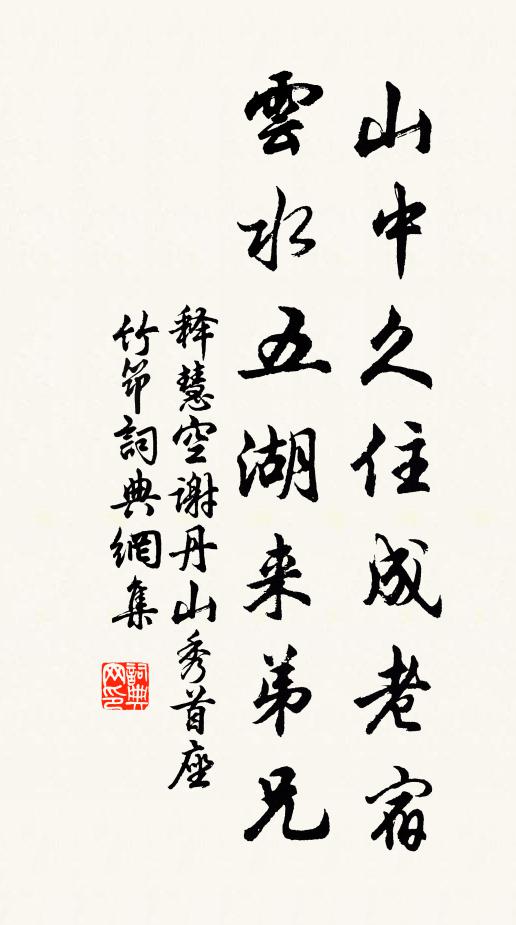 山中久住成老宿
雲水五湖来弟兄
释慧空谢丹山秀首座
竹节詞典網集
詞典网印